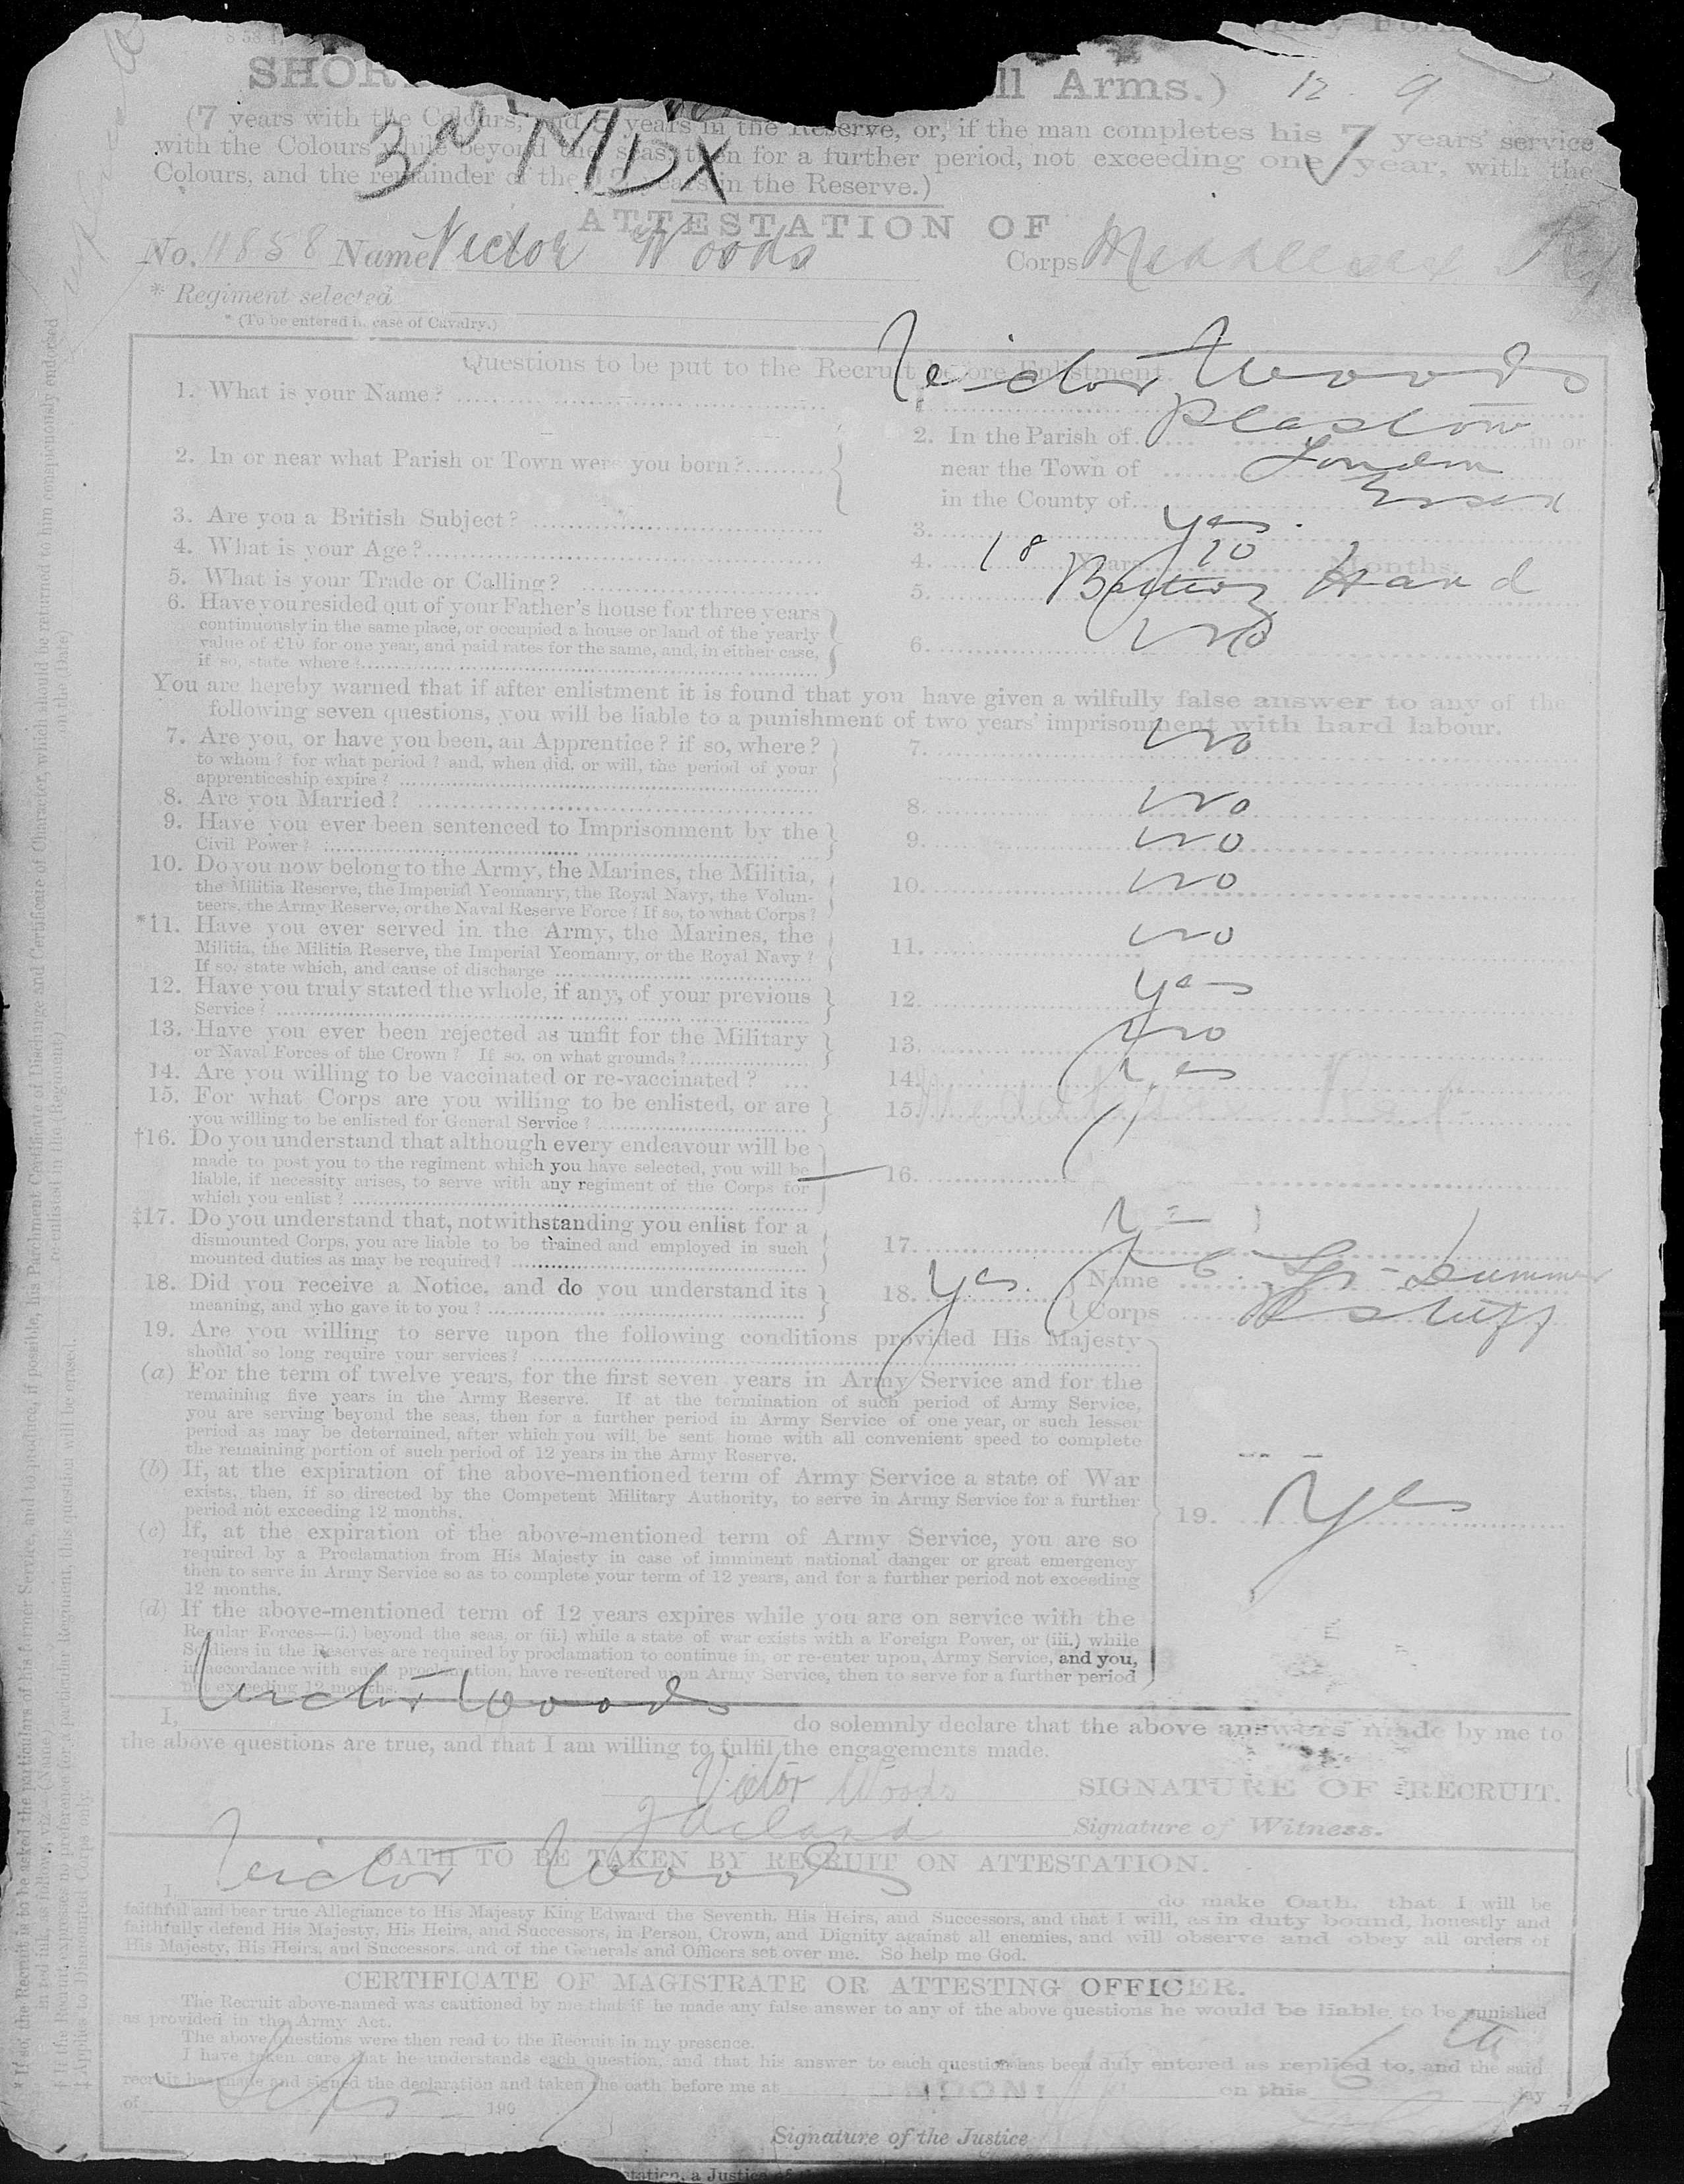 SHOR ll Arms.) 12 . 9
(7 years with the Colours, and 5 years in the Reserve, or, if the man completes his 7 years' service
with the Colours while beyond the seas, then for a further period, not exceeding one year, with the
Colours, and the remainder of the 12 years in the Reserve.)
3rd MDX 7
ATTESTATION OF
No. 11858 Name Victor Woods Corps Middlesex Reg
* Regiment selected
* (To be entered in case of Cavalry.)
Questions to be put to the Recruit before Enlistment.
1. What is your Name? Victor Woods
2. In or near what Parish or Town were you born? 2. In the Parish of Plaistow in or
near the Town of London
in the County of Essex
3. Are you a British Subject? 3. Yes.
4. What is your Age? 4. 18 Years 10 Months.
5. What is your Trade or Calling? 5. Hand
6. Have you resided out of your Father's house for three years
continuously in the same place, or occupied a house or land of the yearly
value of £10 for one year, and paid rates for the same, and, in either case,
if so, state where? 6. No
You are hereby warned that if after enlistment it is found that you have given a wilfully false answer to any of the
following seven questions, you will be liable to a punishment of two years' imprisonment with hard labour.
7. Are you, or have you been, an Apprentice? if so, where? 7. No
to whom? for what period? and, when did, or will, the period of your
apprenticeship expire?
8. Are you Married? 8. No
9. Have you ever been sentenced to Imprisonment by the
Civil Power? 9. No
10. Do you now belong to the Army, the Marines, the Militia,
the Militia Reserve, the Imperial Yeomanry, the Royal Navy, the Volun-
teers, the Army Reserve, or the Naval Reserve Force? If so, to what Corps? 10. No
*11. Have you ever served in the Army, the Marines, the
Militia, the Militia Reserve, the Imperial Yeomanry, or the Royal Navy?
If so, state which, and cause of discharge 11. No
12. Have you truly stated the whole, if any, of your previous
Service? 12. Yes
13. Have you ever been rejected as unfit for the Military
or Naval Forces of the Crown? If so, on what grounds? 13. No
14. Are you willing to be vaccinated or re-vaccinated? 14. Yes
15. For what Corps are you willing to be enlisted, or are
you willing to be enlisted for General Service? 15. Middlesex Regt.
†16. Do you understand that although every endeavour will be
made to post you to the regiment which you have selected, you will be
liable, if necessity arises, to serve with any regiment of the Corps for
which you enlist? 16.
‡17. Do you understand that, notwithstanding you enlist for a
dismounted Corps, you are liable to be trained and employed in such
mounted duties as may be required? 17. Yes
18. Did you receive a Notice, and do you understand its
meaning, and who gave it to you? 18. Yes. Name
Corps
19. Are you willing to serve upon the following conditions provided His Majesty
should so long require your services?
(a) For the term of twelve years, for the first seven years in Army Service and for the
remaining five years in the Army Reserve. If at the termination of such period of Army Service,
you are serving beyond the seas, then for a further period in Army Service of one year, or such lesser
period as may be determined, after which you will be sent home with all convenient speed to complete
the remaining portion of such period of 12 years in the Army Reserve.
(b) If, at the expiration of the above-mentioned term of Army Service a state of War
exists, then, if so directed by the Competent Military Authority, to serve in Army Service for a further
period not exceeding 12 months.
(c) If, at the expiration of the above-mentioned term of Army Service, you are so
required by a Proclamation from His Majesty in case of imminent national danger or great emergency
then to serve in Army Service so as to complete your term of 12 years, and for a further period not exceeding
12 months.
(d) If the above-mentioned term of 12 years expires while you are on service with the
Regular Forces—(i.) beyond the seas, or (ii.) while a state of war exists with a Foreign Power, or (iii.) while
Soldiers in the Reserves are required by proclamation to continue in, or re-enter upon, Army Service, and you,
in accordance with such proclamation, have re-entered upon Army Service, then to serve for a further period
not exceeding 12 months.
19. Yes
I, Victor Woods do solemnly declare that the above answers made by me to
the above questions are true, and that I am willing to fulfil the engagements made.
Victor Woods SIGNATURE OF RECRUIT.
Signature of Witness.
OATH TO BE TAKEN BY RECRUIT ON ATTESTATION.
I, Victor Woods do make Oath, that I will be
faithful and bear true Allegiance to His Majesty King Edward the Seventh, His Heirs, and Successors, and that I will, as in duty bound, honestly and
faithfully defend His Majesty, His Heirs, and Successors, in Person, Crown, and Dignity against all enemies, and will observe and obey all orders of
His Majesty, His Heirs, and Successors, and of the Generals and Officers set over me. So help me God.
CERTIFICATE OF MAGISTRATE OR ATTESTING OFFICER.
The Recruit above-named was cautioned by me that if he made any false answer to any of the above questions he would be liable to be punished
as provided in the Army Act.
The above questions were then read to the Recruit in my presence.
I have taken care that he understands each question, and that his answer to each question has been duly entered as replied to, and the said
recruit has made and signed the declaration and taken the oath before me at LONDON on this 6th day
of Sept 190
Signature of the Justice
* If so, the Recruit is to be asked the particulars of his former Service, and to produce, if possible, his Parchment Certificate of Discharge and Certificate of Character, which should be returned to him conspicuously endorsed
in red ink, as follows, viz.—(Name) re-enlisted in the (Regiment) on the (Date)
† If the Recruit expresses no preference for a particular Regiment, this question will be erased.
‡ Applies to Dismounted Corps only.